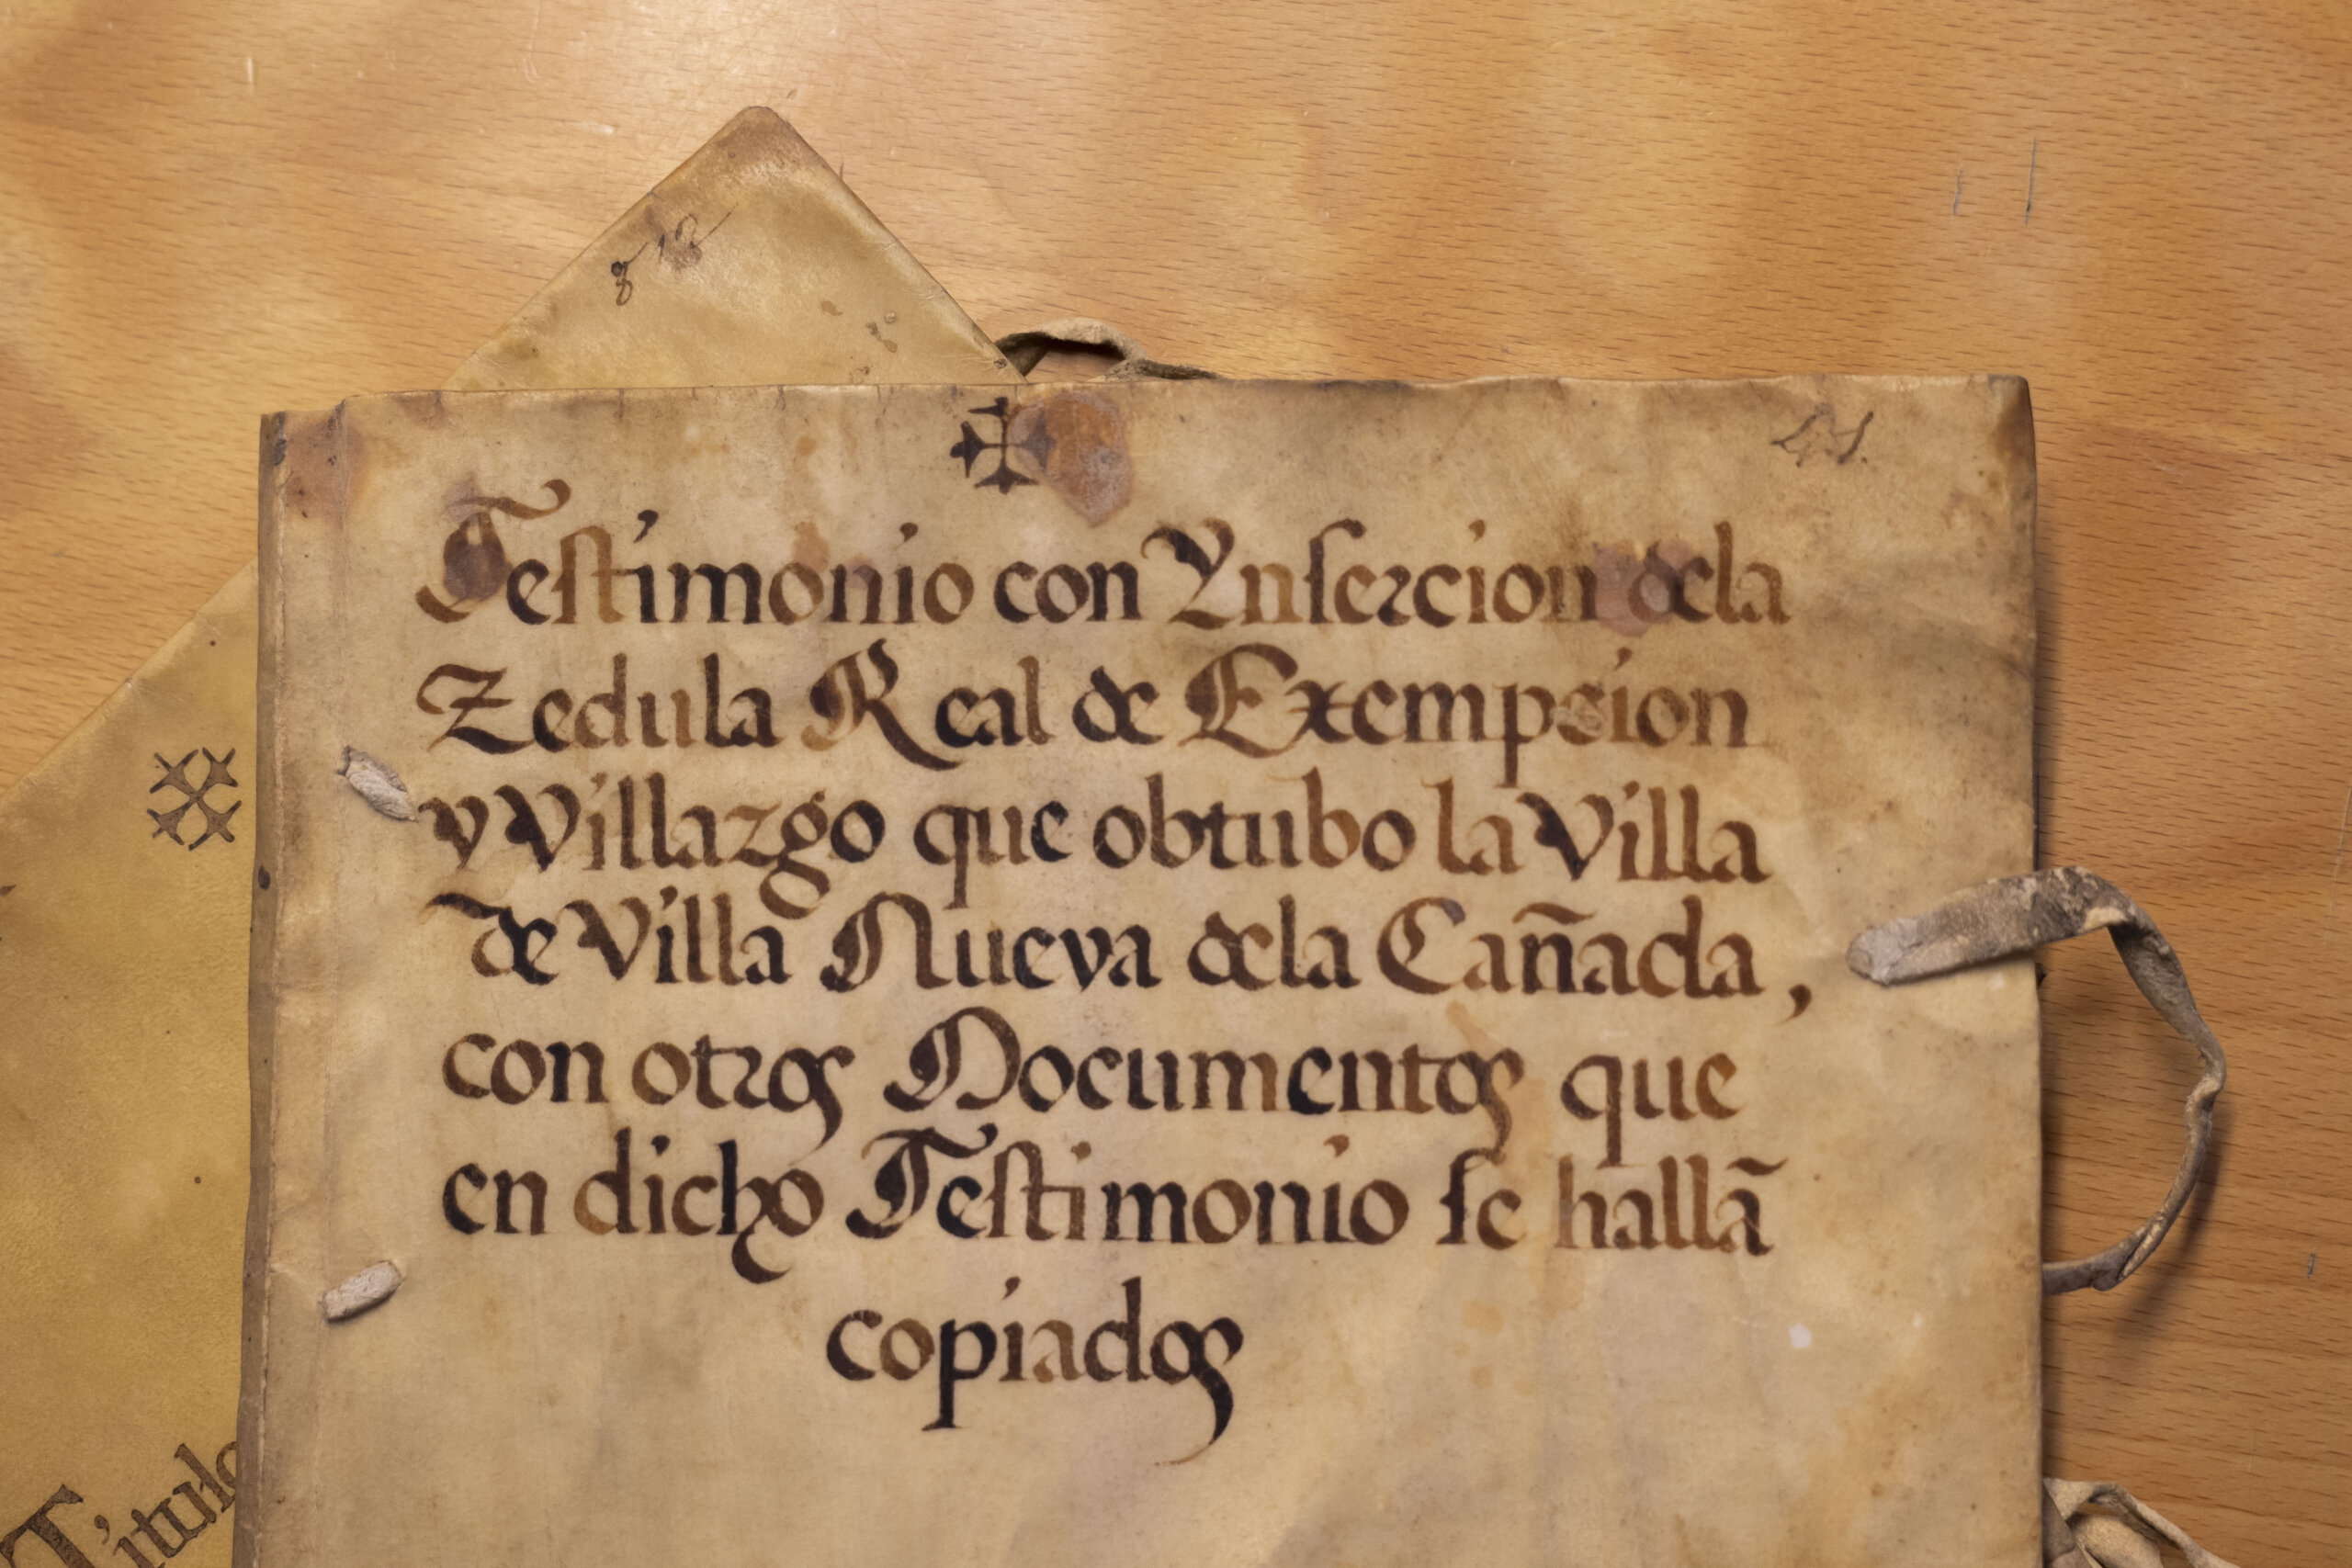 8 12
41.
Testimonio con Ynsercion dela
Zedula Real de Exempcion
y Villazgo que obtubo la Villa
de Villa Nueva dela Cañada,
con otros Documentos que
en dicho Testimonio se hallã
copiados
Titulo